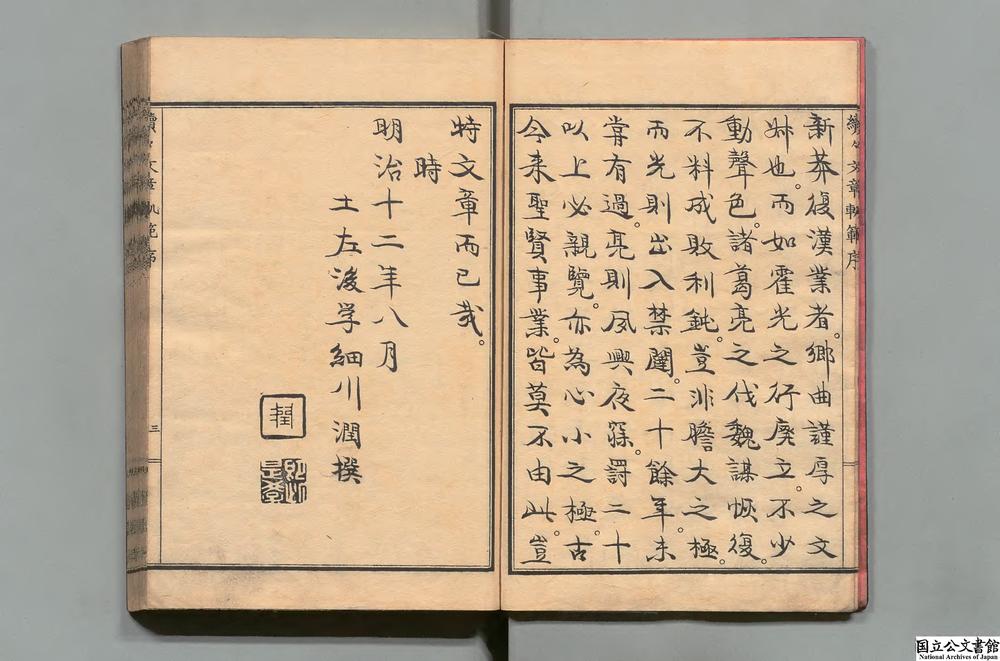 續々文章軌範序
新莽復漢業者。鄉曲謹厚之文
叔也。而如霍光之行廢立。不少
動聲色。諸葛亮之伐魏謀恢復。
不料成敗利鈍。豈非膽大之極。
而光則出入禁闥。二十餘年。未
嘗有過。亮則夙興夜寐。罰二十
以上必親覽。亦為心小之極。古
今来聖賢事業。皆莫不由此。豈
特文章而已哉。
時
明治十二年八月
土左後学細川潤撰
潤
三
國立公文書館
National Archives of Japan